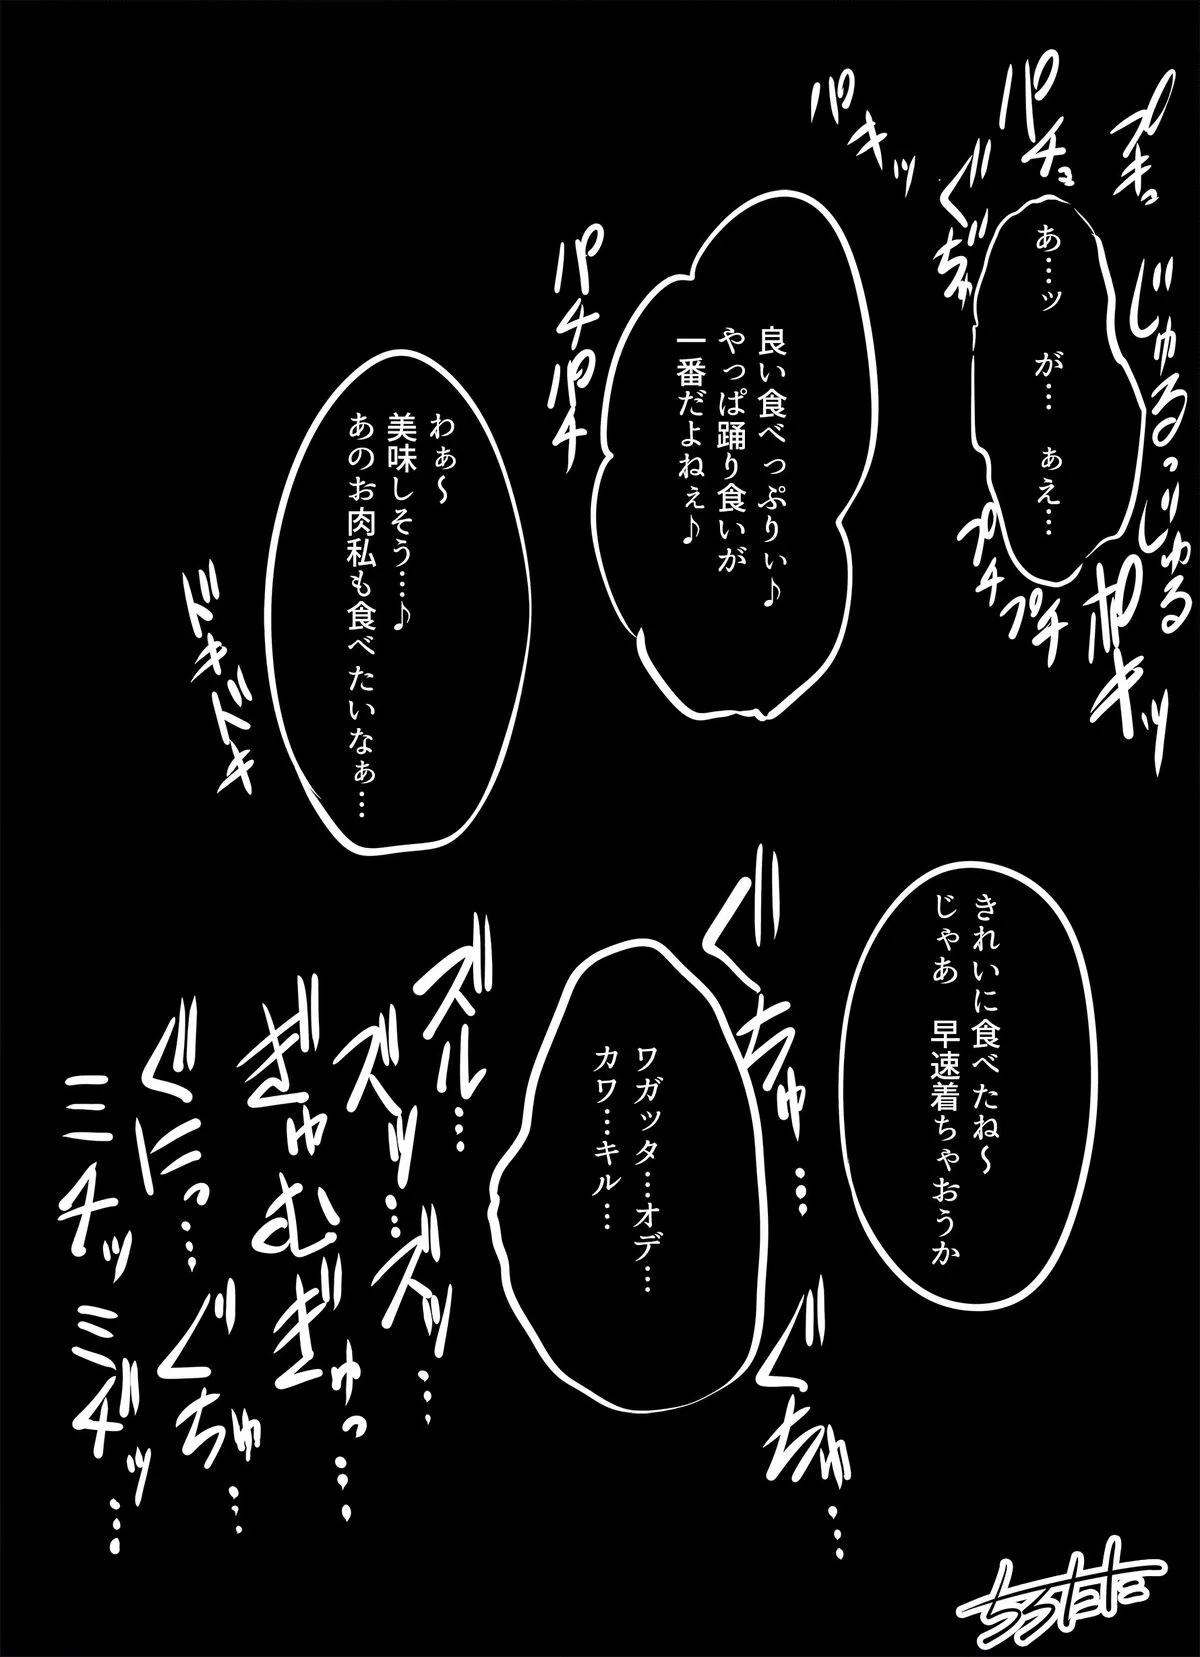 プキュッ
パチュ
パキッ
ぐぢゅ
じゅるっじゅる
あ…ッ が… ぁえ…
プチ
プチ
ポキッ
良い食べっぷりぃ♪
やっぱ踊り食いが
一番だよねぇ♪
パチパチ
わぁ～
美味しそう…♪
あのお肉私も食べたいなぁ…
ドキドキ
きれいに食べたね～
じゃあ 早速着ちゃおうか
ぐちゅ…ぐちゅ…
ワガッタ…オデ…
カワ…キル…
ズル…
ズッ…ズッ…
ぎゅむぎゅっ…
ぐにっ…ぐちゅ…
ミチッミヂッ…
ちろたた